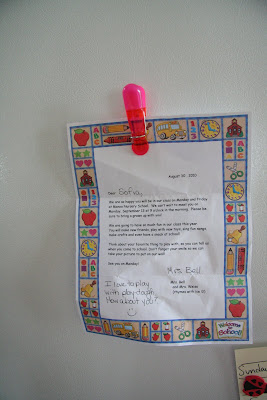 August 30, 2010
Dear Sofia,
We are so happy you will be in our class on Monday and Friday
at Nursery School. We can't wait to meet you on
Monday, September 13 at 9 o'clock in the morning. Please be
sure to bring a grown-up with you!
We are going to have so much fun in our class this year.
You will meet new friends, play with new toys, sing fun songs,
make crafts and even have a snack at school!
Think about your favorite thing to play with, so you can tell us
when you come to school. Don't forget your smile so we can
take your picture to put on our wall!
See you on Monday!
Mrs. Bell
Mrs. Bell
and Mrs.
I love to play
with playdough.
How about you?
Welcome
to School!
Sunday